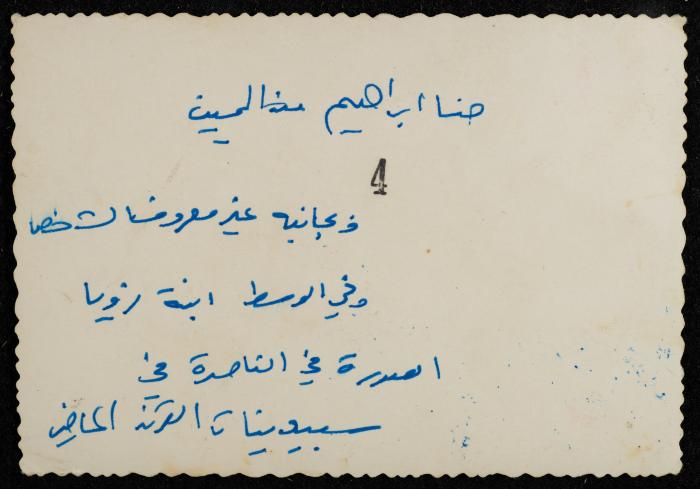 حنا ابراهيم من اليمين
4
وبجانبه غير معروف
وفي الوسط ابنة زويا
الصورة في الناصرة في
سبعينات القرن الماضي